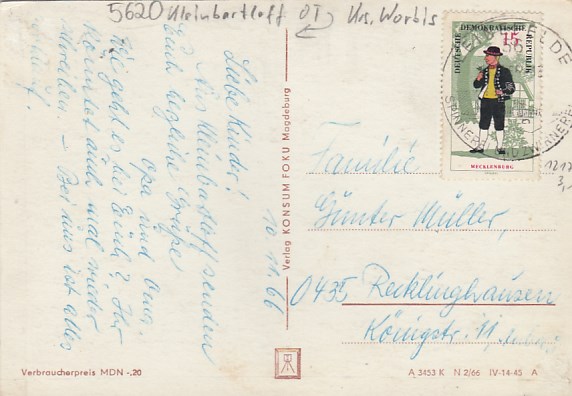 5620 Kleinbartloff OT Krs. Worbis
Liebe Kinder!
Aus Kleinbartloff senden
Euch herzliche Grüße
Opa und Oma
Wie geht es bei Euch? Ihr
könntet auch mal wieder
schreiben – Bei uns ist alles
10 11. 66
Verlag KONSUM FOKU Magdeburg
DEUTSCHE DEMOKRATISCHE REPUBLIK
15
MECKLENBURG
1217
3,-
Familie
Günter Müller,
Recklinghausen
Königstr. 11,
Verbraucherpreis MDN -,20
A 3453 K N 2/66 IV-14-45 A